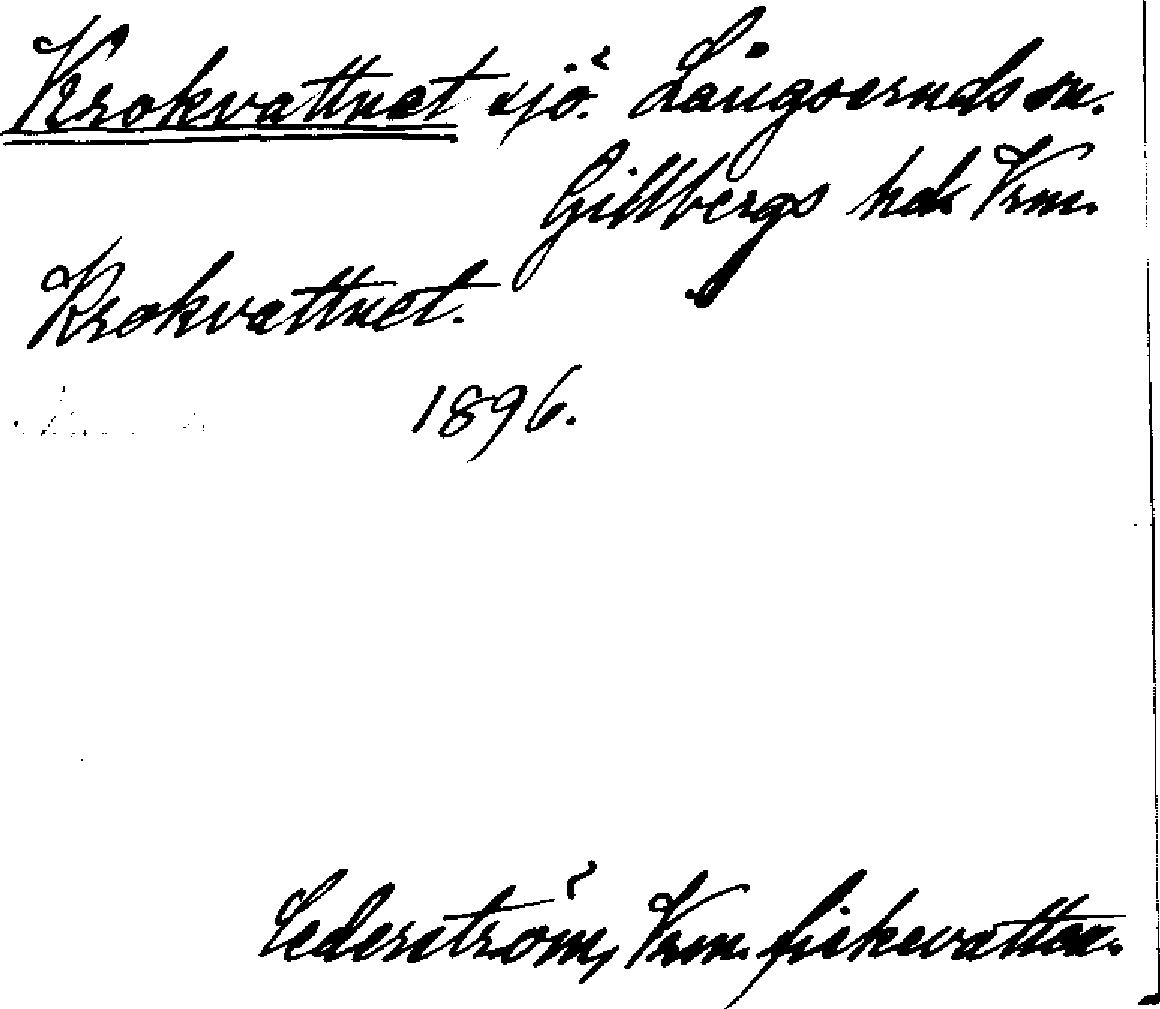 Krokvattnet sjö. Långseruds sn.
Gillbergs hd. Vrm.
Krokvattnet.
1896.
Cederström, Vrm. fiskevatten.